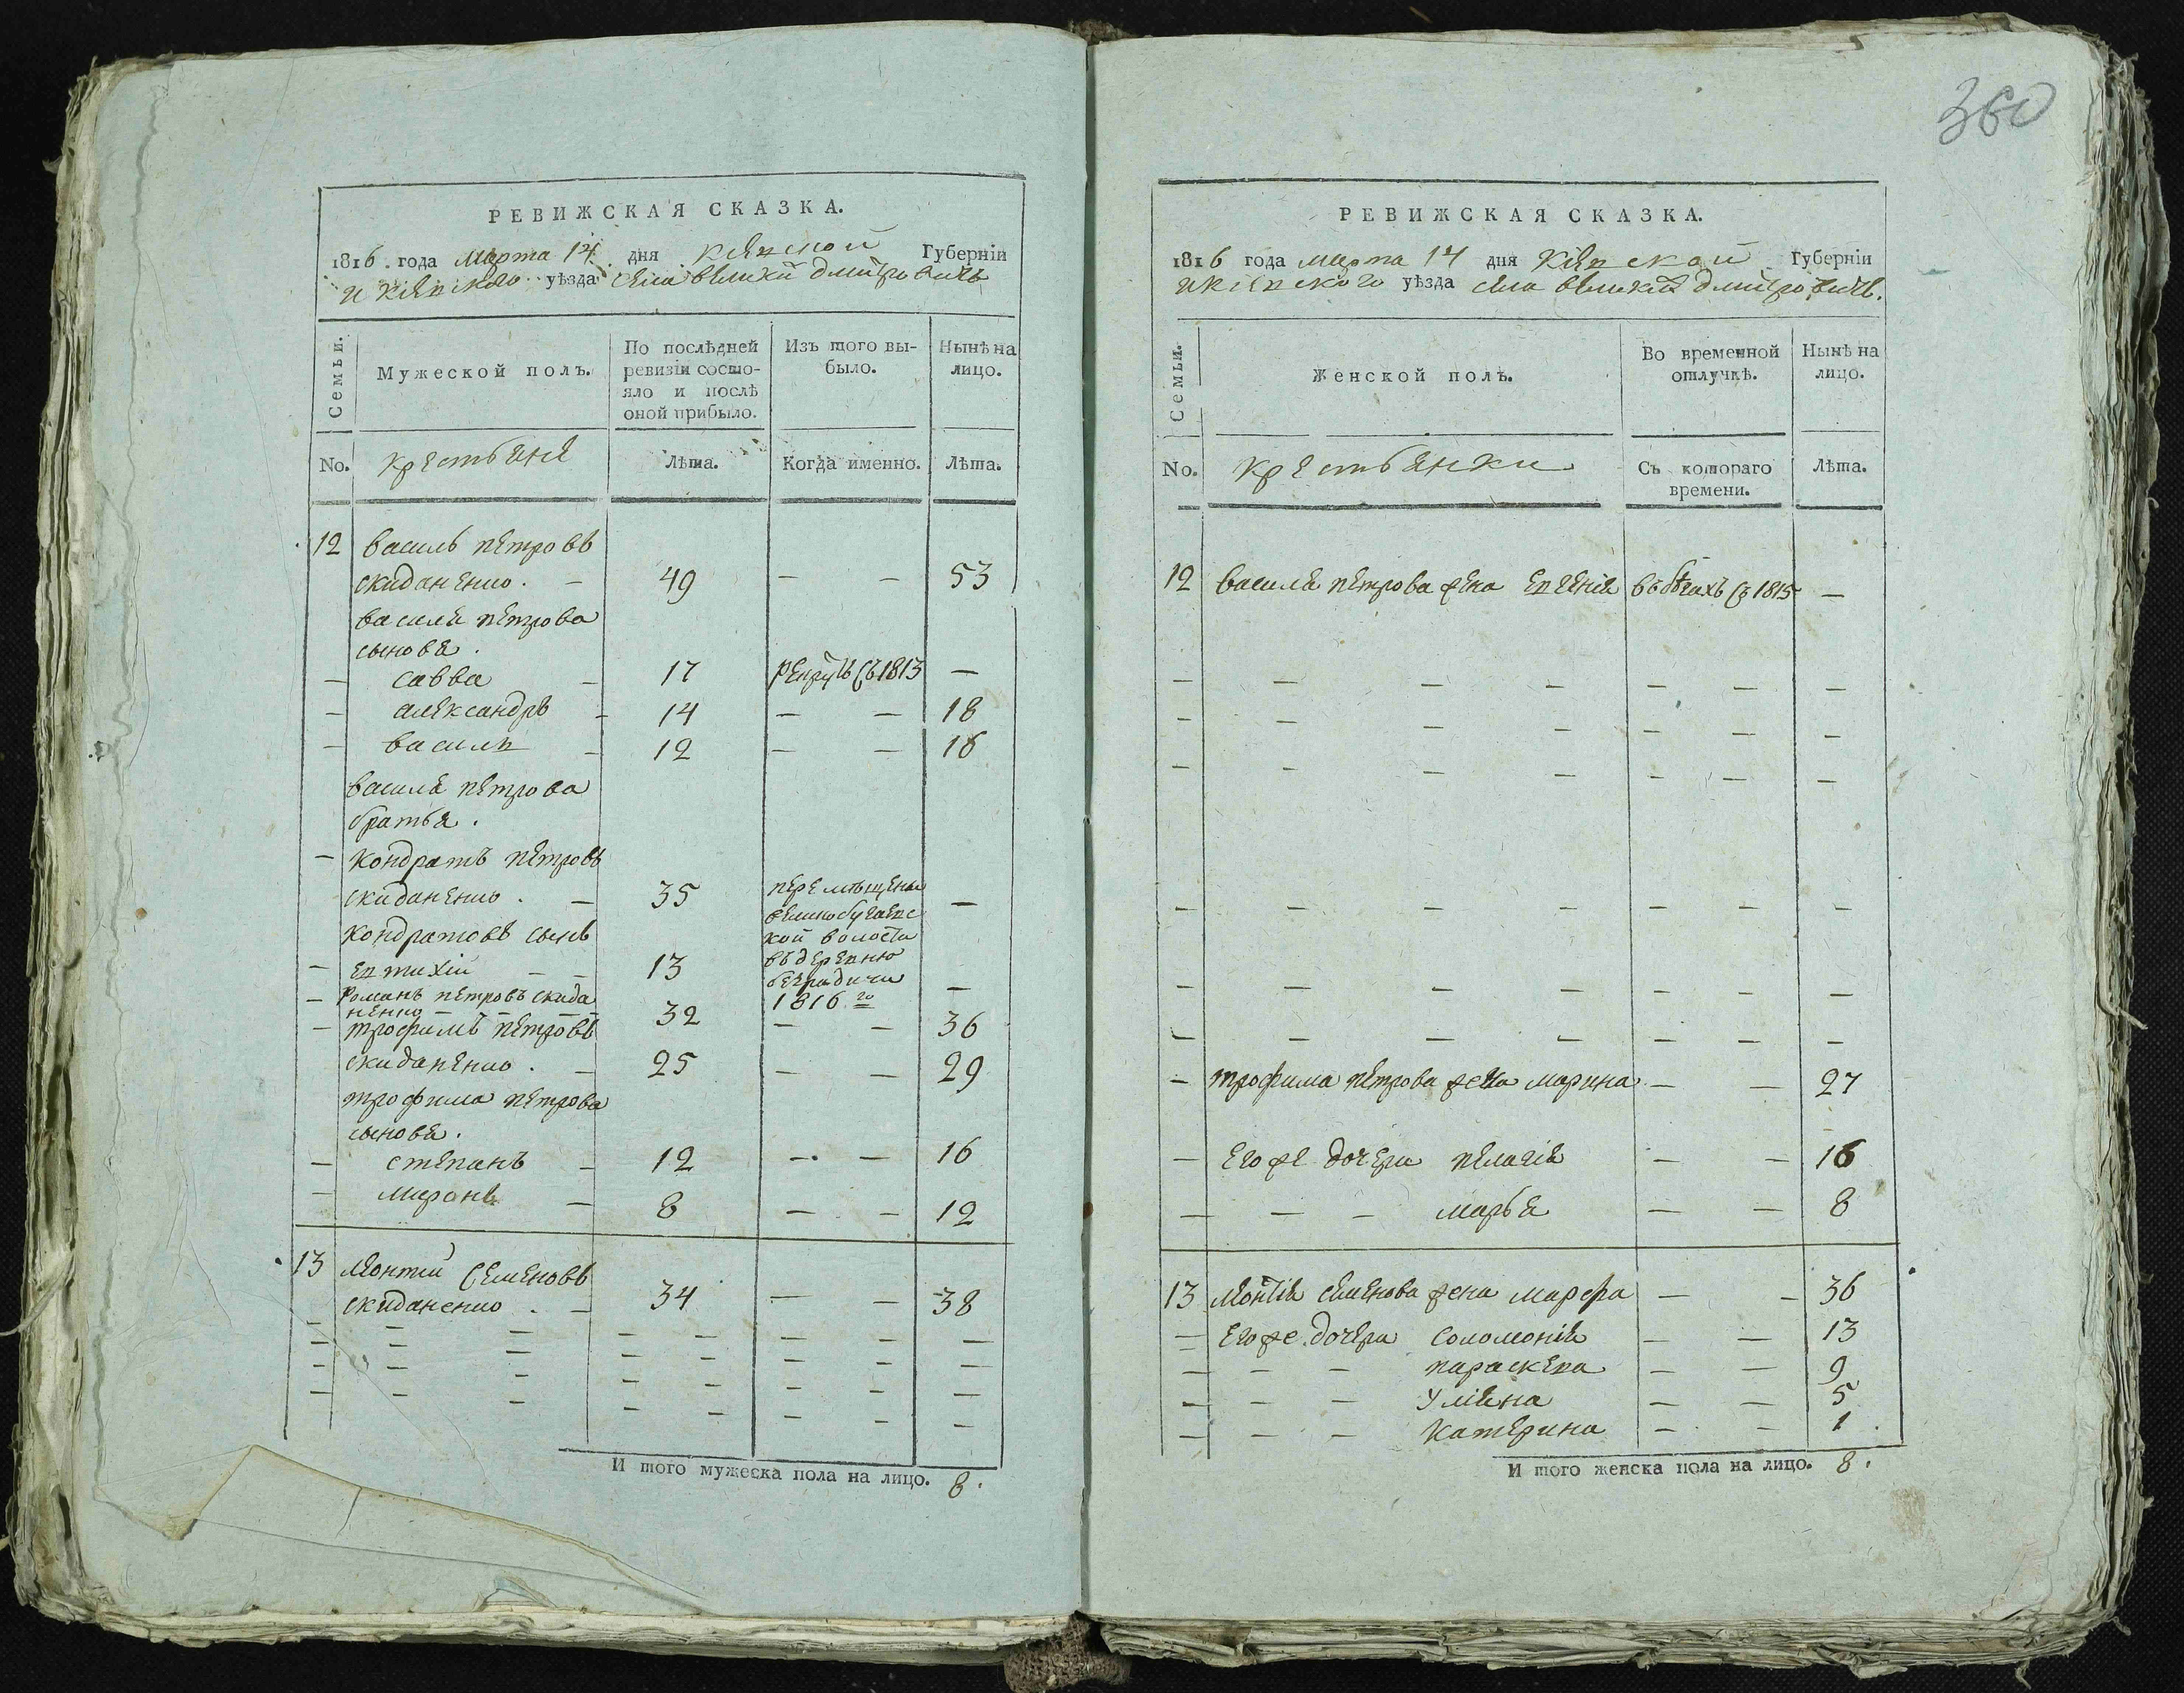 360
РЕВИЖСКАЯ СКАЗКА.
1816 года Марта 14 дня Кіевской Губерніи
и Кіевского уѣзда села великій дмитровичь
Семьи.
Мужеской полъ.
По послѣдней ревизіи состояло и послѣ оной прибыло.
Изъ того выбыло.
Нынѣ на лицо.
No. крестьяне Лѣта. Когда именно. Лѣта.
12 василь петровъ
скиданенко. — 49 — — 53
василя петрова
сыновя.
— савва — 17 рекрутъ съ 1813 —
— александръ — 14 — — 18
— василь — 12 — — 16
василя петрова
братья.
— кондратъ петровъ
скиданенко. — 35 перемѣщены —
кондратовъ сынъ
кой волости
— евтихій — — 13 въ деревню
безрадичи —
— романъ петровъ скида
ненко — — — — 32 1816 го
— — 36
— трофимъ петровъ
скиданенко. — 25 — — 29
трофима петрова
сыновя.
— степанъ — 12 — — 16
— миронъ — 8 — — 12
13 леонтій семеновъ
скиданенко. — 34 — — 38
И того мужеска пола на лицо. 8.
РЕВИЖСКАЯ СКАЗКА.
1816 года марта 14 дня Кіевской Губерніи
и кіевского уѣзда села великій дмитровичь.
Семьи.
Женской полъ.
Во временной отлучкѣ.
Нынѣ на лицо.
No. крестьянки Съ котораго времени. Лѣта.
12 василя петрова жена евгенія въ бѣгахъ съ 1815 —
— трофима петрова жена марина — — 27
— его же дочери пелагія — — 16
— — — марья — — 8
13 леонтія семенова жена марфа — — 36
— его же дочери соломонія — — 13
— — — параскева — — 9
— — — уліяна — — 5
— — — катерина — — 1
И того женска пола на лицо. 8.